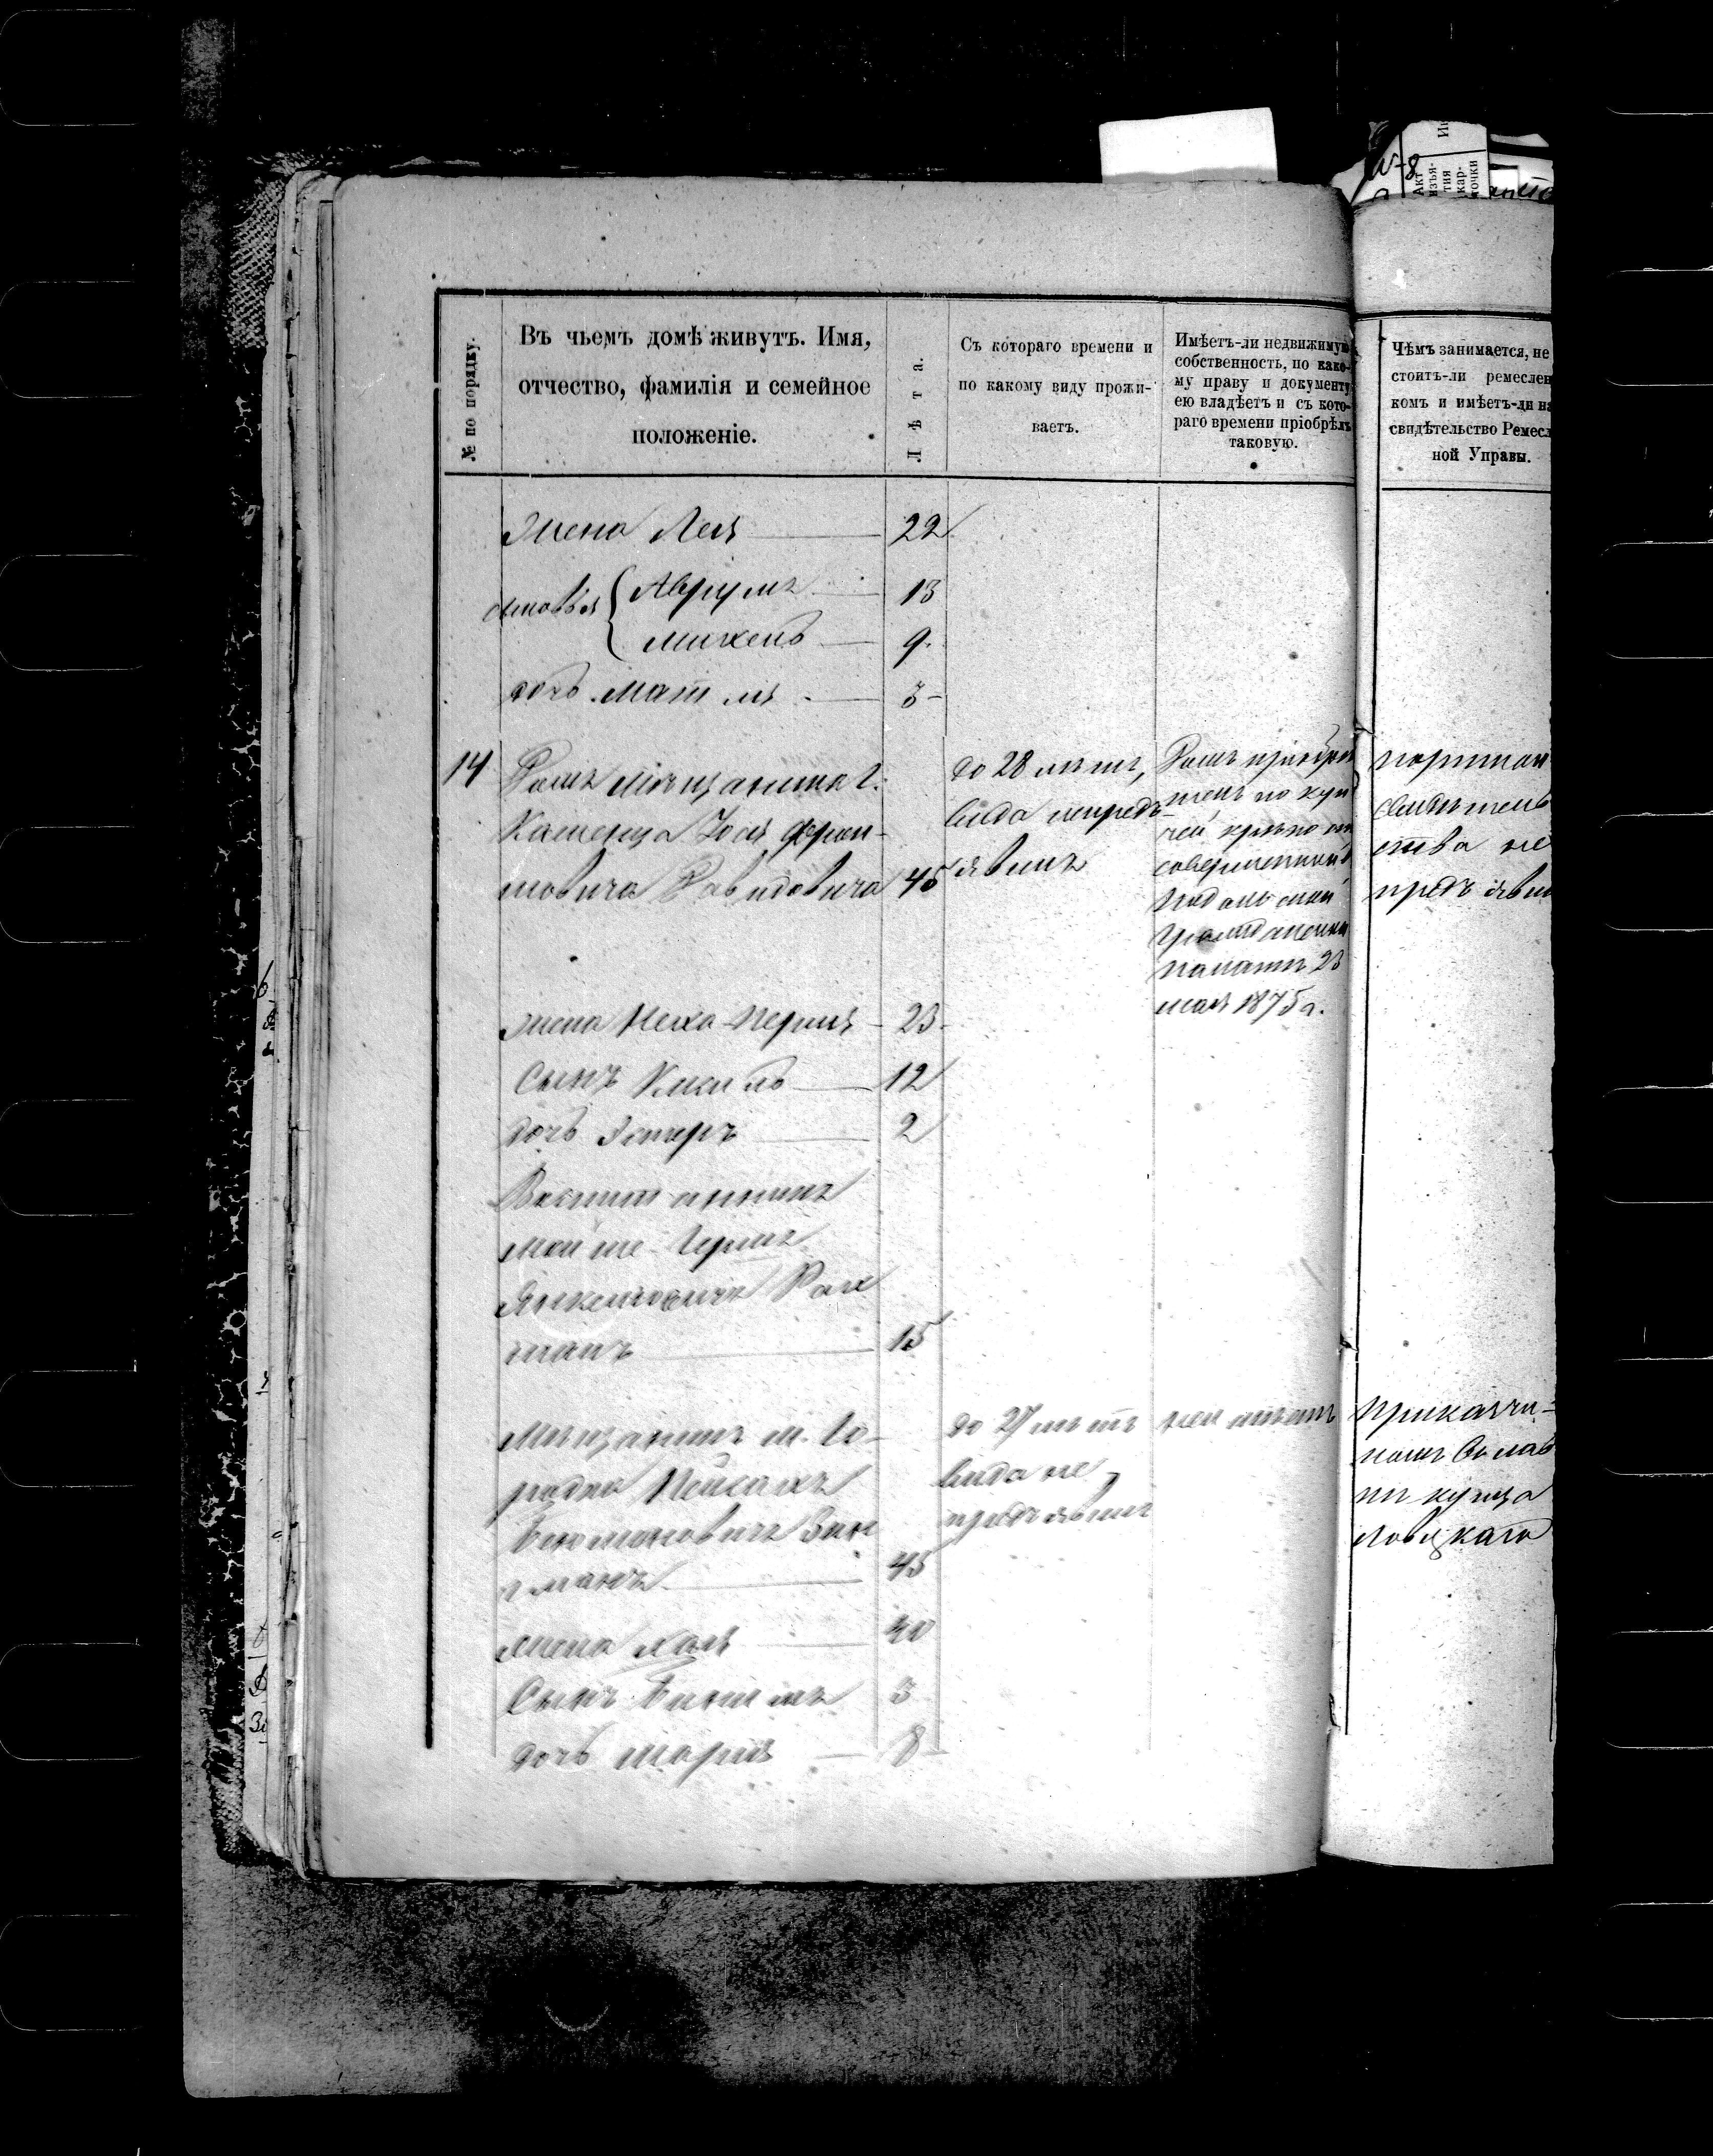 № по порядку.
Въ чьемъ домѣ живутъ. Имя,
отчество, фамилія и семейное
положеніе.
Лѣта.
Съ котораго времени и
по какому виду прожи-
ваетъ.
Имѣетъ-ли недвижимую
собственность, по како-
му праву и документу
ею владѣетъ и съ кото-
раго времени пріобрѣлъ
таковую.
Чѣмъ занимается, не
стоитъ-ли ремеслен
комъ и имѣетъ-ли на
свидѣтельство Ремесл
ной Управы.
Акт
изъя-
тия
кар-
точки
Жена Лея 22
сыновья Аврумъ 13
Михель 9
дочь Матля 3
14 Домъ мѣщанина г.
Каменца Іося
Давидовича 45
до 28 лѣтъ,
вида непредъ-
явилъ
Домъ пріобрѣ
тенъ по куп
чей крѣпости
совершенной
Подольской
Гражданской
палатѣ 23
мая 1875 г.
портной
свидѣтель
ства не
предъяви
жена Неха-Перля 23
Сынъ 12
дочь Эстеръ 2
Воспитанникъ
Мойше-Герш
Янкелевичъ Рах
манъ 15
Мѣщанинъ м. Го-
родка Пейсахъ
манъ 45
до 27 лѣтъ
вида не
предъявилъ
не имѣетъ
Приказчи-
комъ въ лав
кѣ купца
Новицкаго
жена Хая 40
Сынъ 3
дочь 8